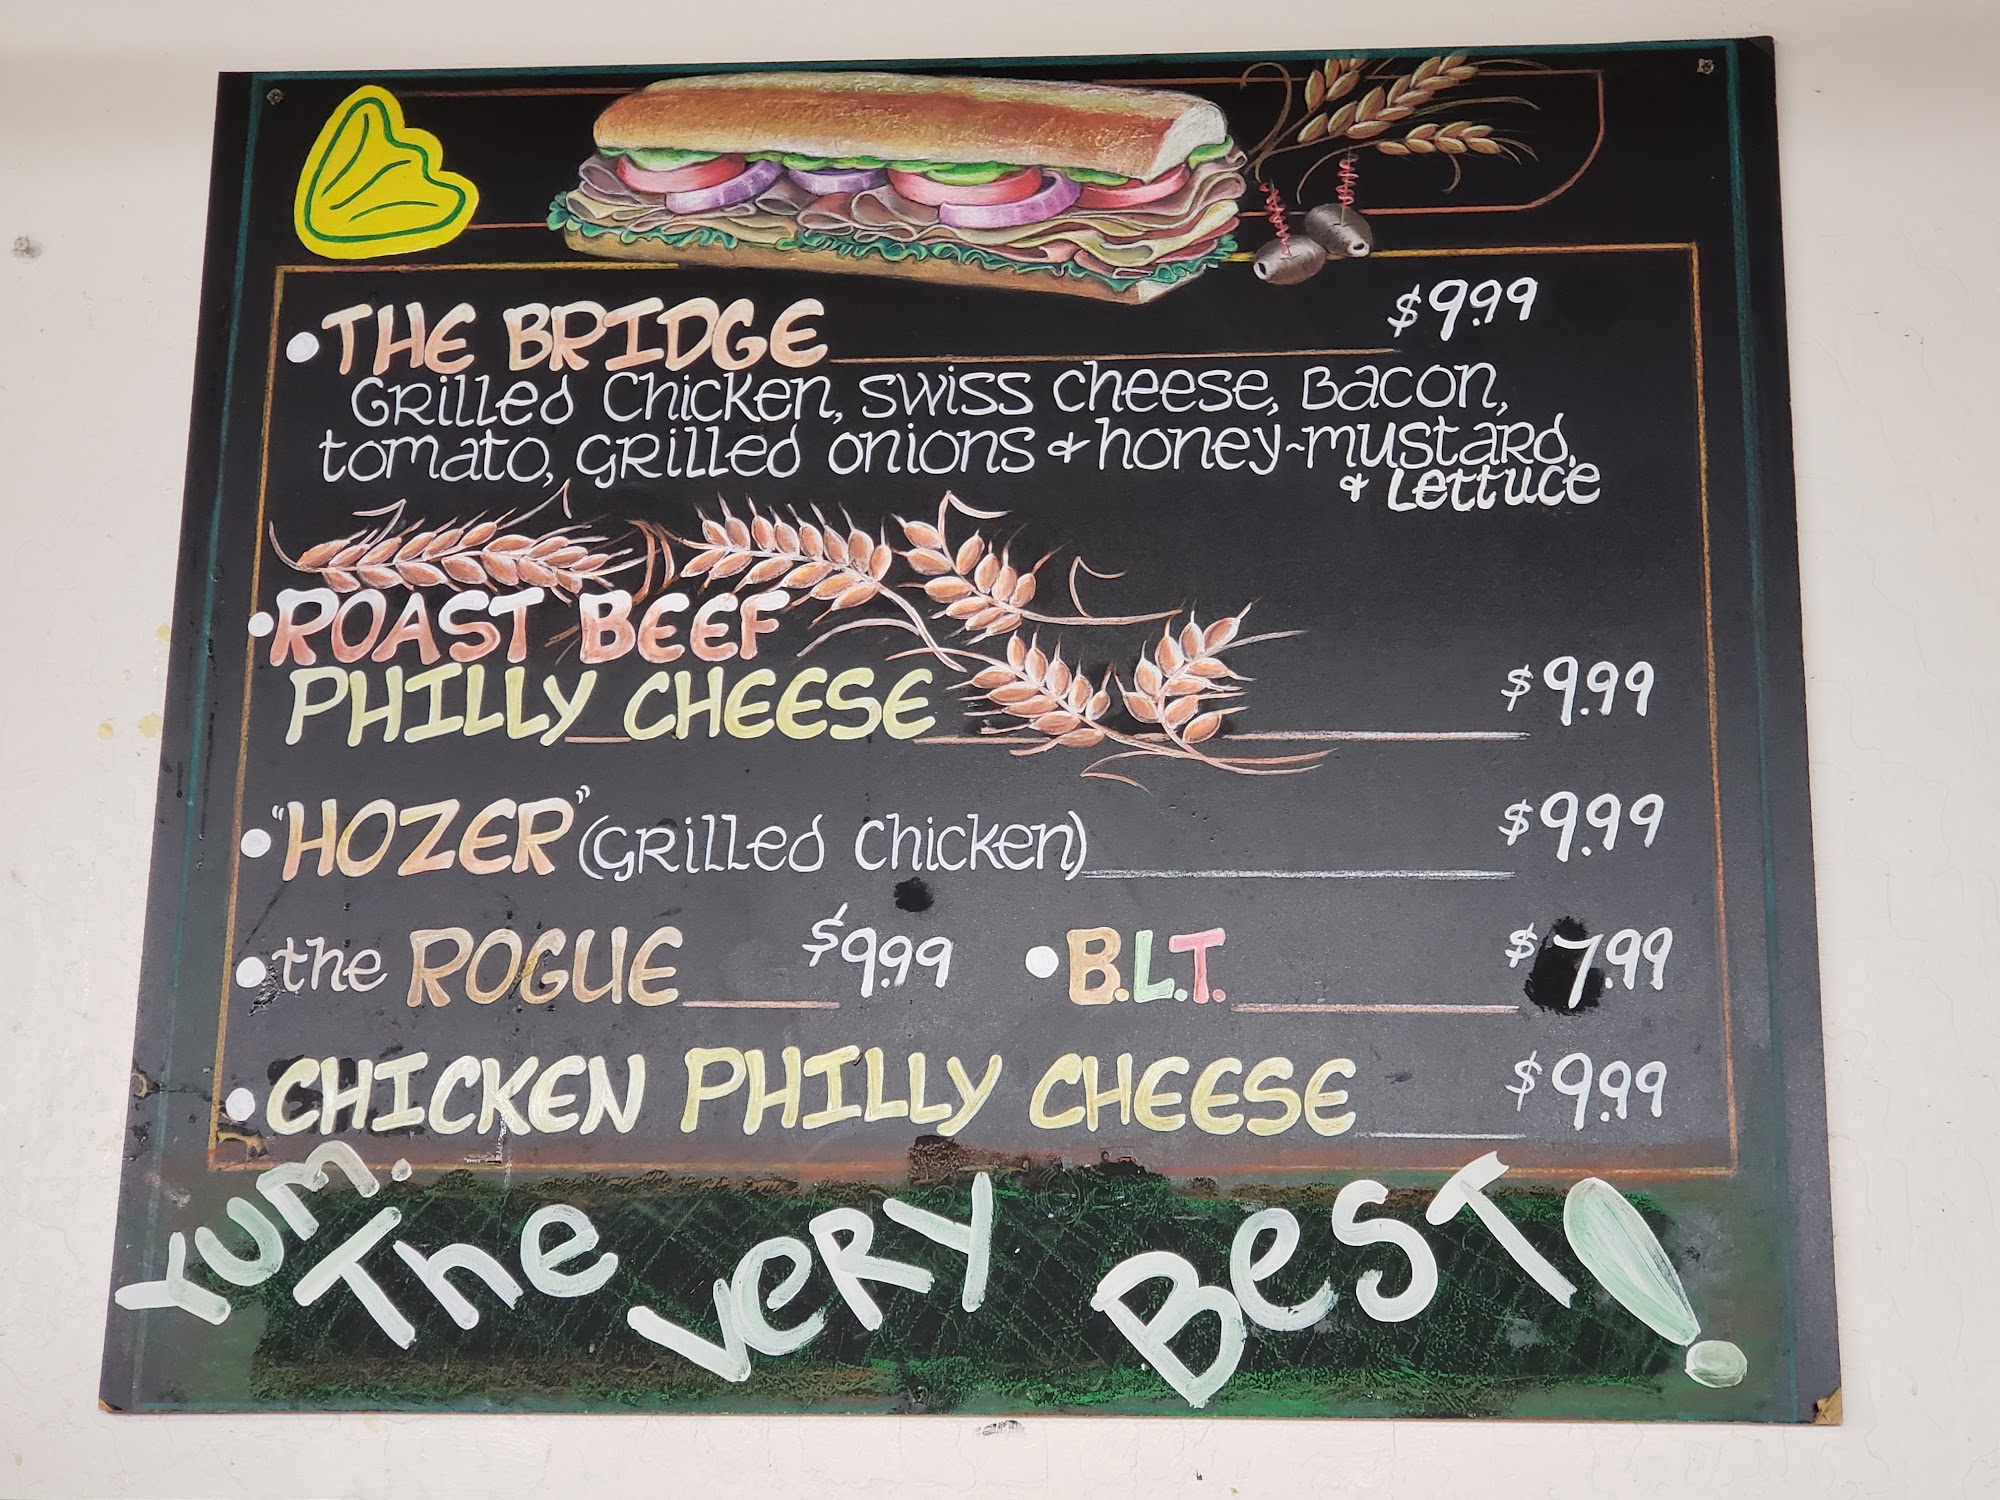 • THE BRIDGE $9.99
Grilled Chicken, swiss cheese, Bacon,
tomato, Grilled onions & honey~mustard,
& Lettuce
• ROAST BEEF
PHILLY CHEESE $9.99
• "HOZER" (Grilled Chicken) $9.99
• the ROGUE $9.99 • B.L.T. $7.99
• CHICKEN PHILLY CHEESE $9.99
YUM. The VERY BEST!